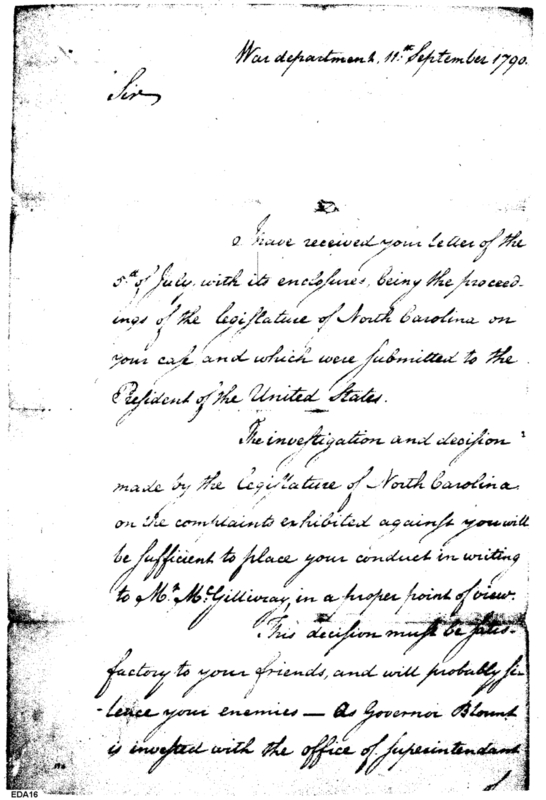 War department, 11.th September 1790.
Sir
I have received your letter of the
5.th of July, with its enclosures, being the proceed-
ings of the legislature of North Carolina on
your case and which were submitted to the
President of the United States.
The investigation and decision
made by the legislature of North Carolina
on the complaints exhibited against you will
be sufficient to place your conduct in writing
to Mr. McGillivray, in a proper point of view.
This decision must be satis-
factory to your friends, and will probably si-
-lence your enemies — As Governor Blount
is invested with the office of Superintendant
of
EDA16